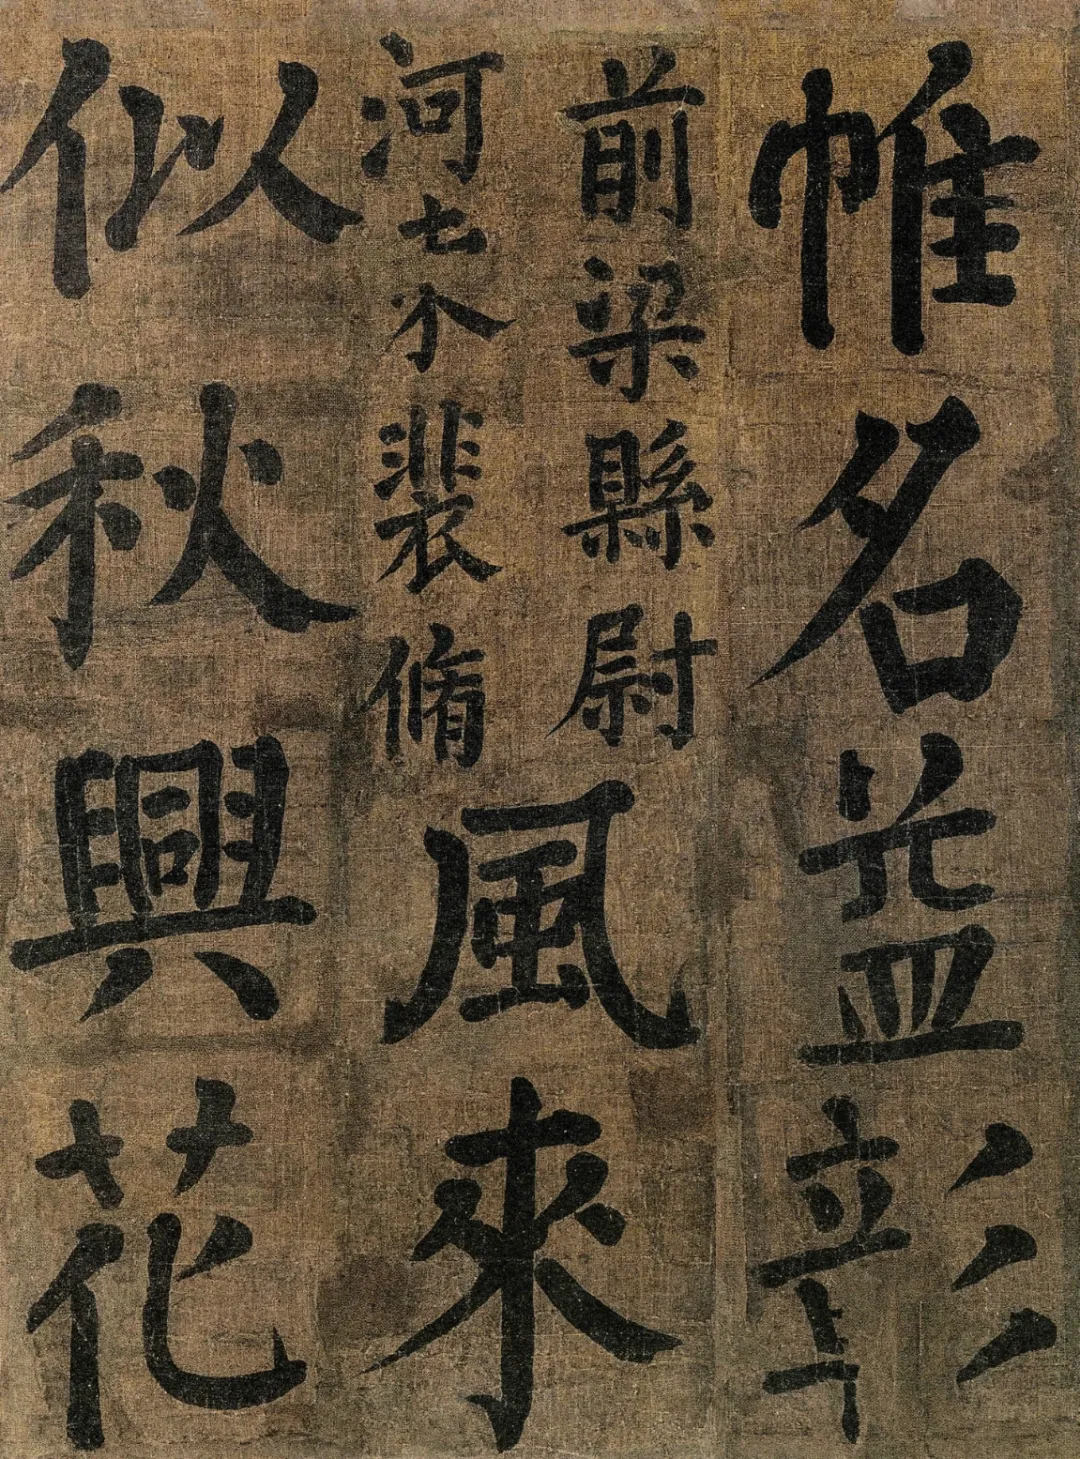 帷名益彰
前梁縣尉
河裴脩
風來
似秋興花